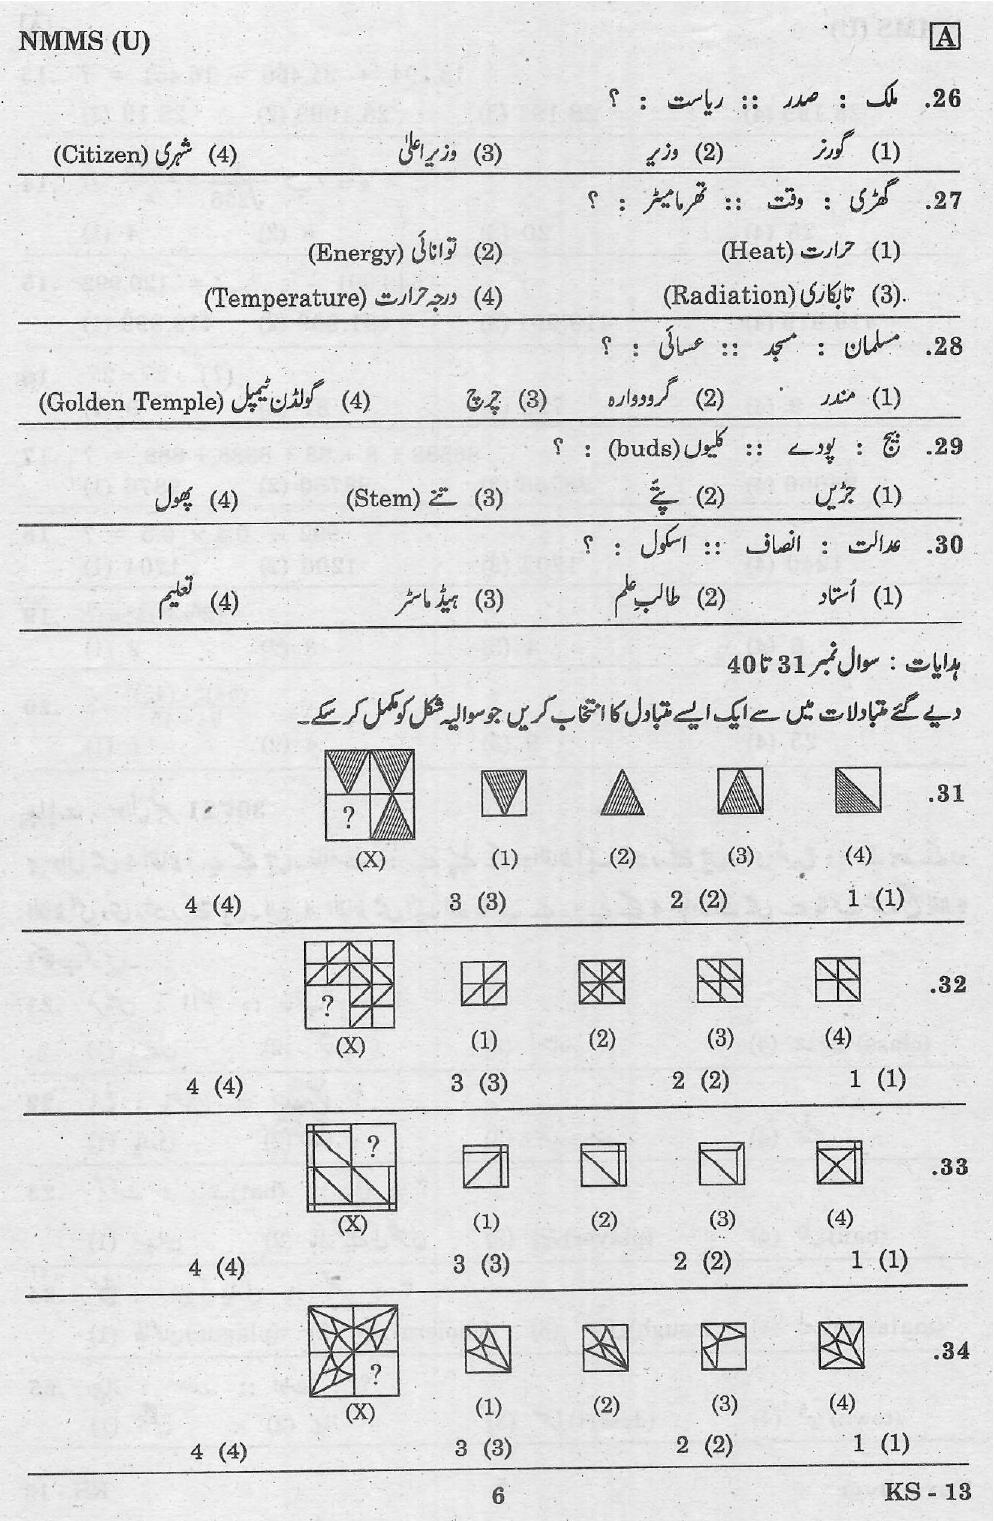 NMMS (U) A
26. ملک : صدر :: ریاست : ؟
(1) گورنر (2) وزیر (3) وزیراعلیٰ (4) شہری (Citizen)
27. گھڑی : وقت :: تھرمامیٹر : ؟
(1) حرارت (Heat) (2) توانائی (Energy)
(3) تابکاری (Radiation) (4) درجہ حرارت (Temperature)
28. مسلمان : مسجد :: عسائی : ؟
(1) مندر (2) گرودوارہ (3) چرچ (4) گولڈن ٹیمپل (Golden Temple)
29. بیج : پودے :: کلیوں (buds) : ؟
(1) جڑیں (2) پتّے (3) تنے (Stem) (4) پھول
30. عدالت : انصاف :: اسکول : ؟
(1) اُستاد (2) طالب علم (3) ہیڈ ماسٹر (4) تعلیم
ہدایات : سوال نمبر 31 تا 40
دیے گئے متبادلات میں سے ایک ایسے متبادل کا انتخاب کریں جو سوالیہ شکل کو مکمل کر سکے۔
31.
?
(X) (1) (2) (3) (4)
(1) 1 (2) 2 (3) 3 (4) 4
32.
?
(X) (1) (2) (3) (4)
(1) 1 (2) 2 (3) 3 (4) 4
33.
?
(X) (1) (2) (3) (4)
(1) 1 (2) 2 (3) 3 (4) 4
34.
?
(X) (1) (2) (3) (4)
(1) 1 (2) 2 (3) 3 (4) 4
6 KS - 13